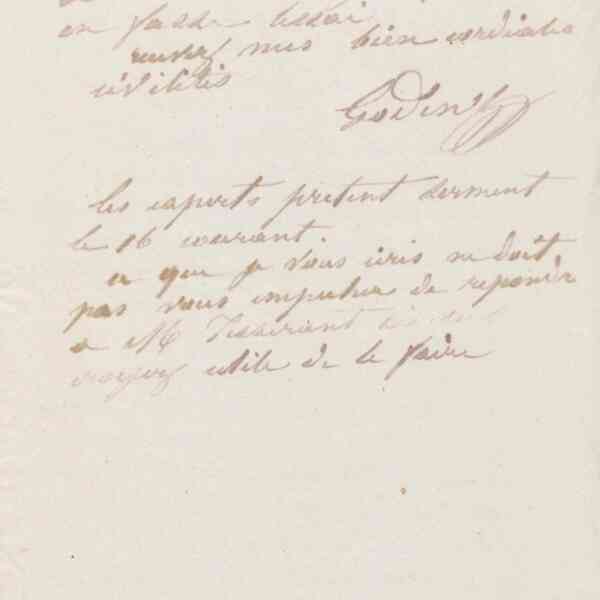 en fasse l'essai
recevez mes bien cordiales
civilités
Godin
les experts pretent serment
le 16 courant.
ce que je vous ecris ne doit
pas vous empecher de repondre
a Mr Tisserant si vous
croyez utile de le faire